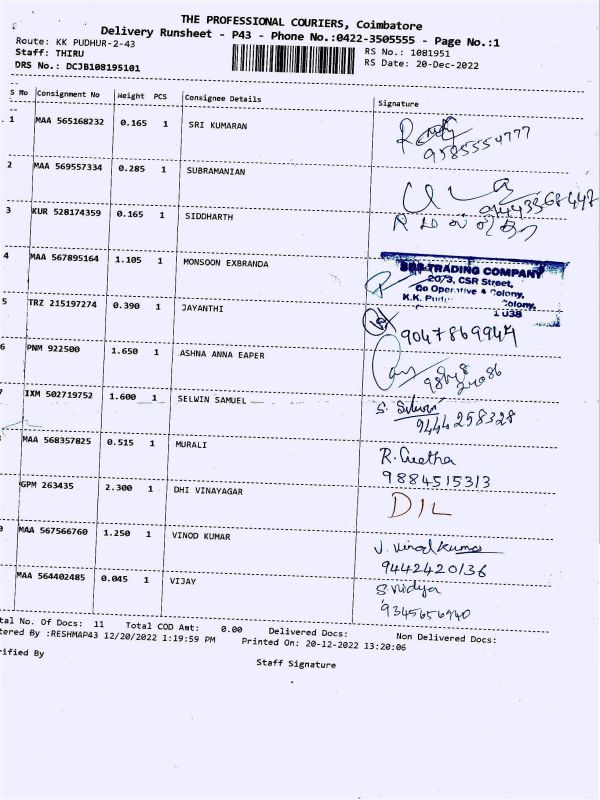 THE PROFESSIONAL COURIERS, Coimbatore
Delivery Runsheet - P43 - Phone No.:0422-3505555 - Page No.:1
Route: KK PUDHUR-2-43 RS No.: 1081951
Staff: THIRU RS Date: 20-Dec-2022
DRS No.: DCJB108195101
S No Consignment No Weight PCS Consignee Details Signature
1 MAA 565168232 0.165 1 SRI KUMARAN
9585554777
2 MAA 569557334 0.285 1 SUBRAMANIAN
3 KUR 528174359 0.165 1 SIDDHARTH
4 MAA 567895164 1.105 1 MONSOON EXBRANDA
TRADING COMPANY
20/3, CSR Street,
Co Operative Colony,
K.K. Pudur
5 TRZ 215197274 0.390 1 JAYANTHI
9047869944
6 PNM 922500 1.650 1 ASHNA ANNA EAPER
IXM 502719752 1.600 1 SELWIN SAMUEL
S. Selwin
9444258328
MAA 568357825 0.515 1 MURALI
R. Geetha
9884515313
GPM 263435 2.300 1 DHI VINAYAGAR
D/L
MAA 567566760 1.250 1 VINOD KUMAR
J. Vinod Kumar
9442420136
MAA 564402485 0.045 1 VIJAY
S. Vidya
9345656940
tal No. Of Docs: 11 Total COD Amt: 0.00 Delivered Docs: Non Delivered Docs:
tered By :RESHMAP43 12/20/2022 1:19:59 PM Printed On: 20-12-2022 13:20:06
rified By
Staff Signature